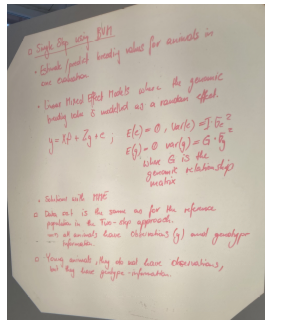 □ Single Step using BVM
• Estimate/predict breeding values for animals in
one evaluation
• Linear Mixed Effect Models where the genomic
breeding value is modelled as a random effect.
y = Xβ + Zg + e ; E(e) = 0, var(e) = I·σe²
E(g) = 0 var(g) = G·σg²
where G is the
genomic relationship
matrix
• Solutions with MME
□ Data set is the same as for the reference
population in the Two-step approach.
all animals have observations (y) and genotype
information
□ Young animals, they do not have observations,
but they have genotype-information